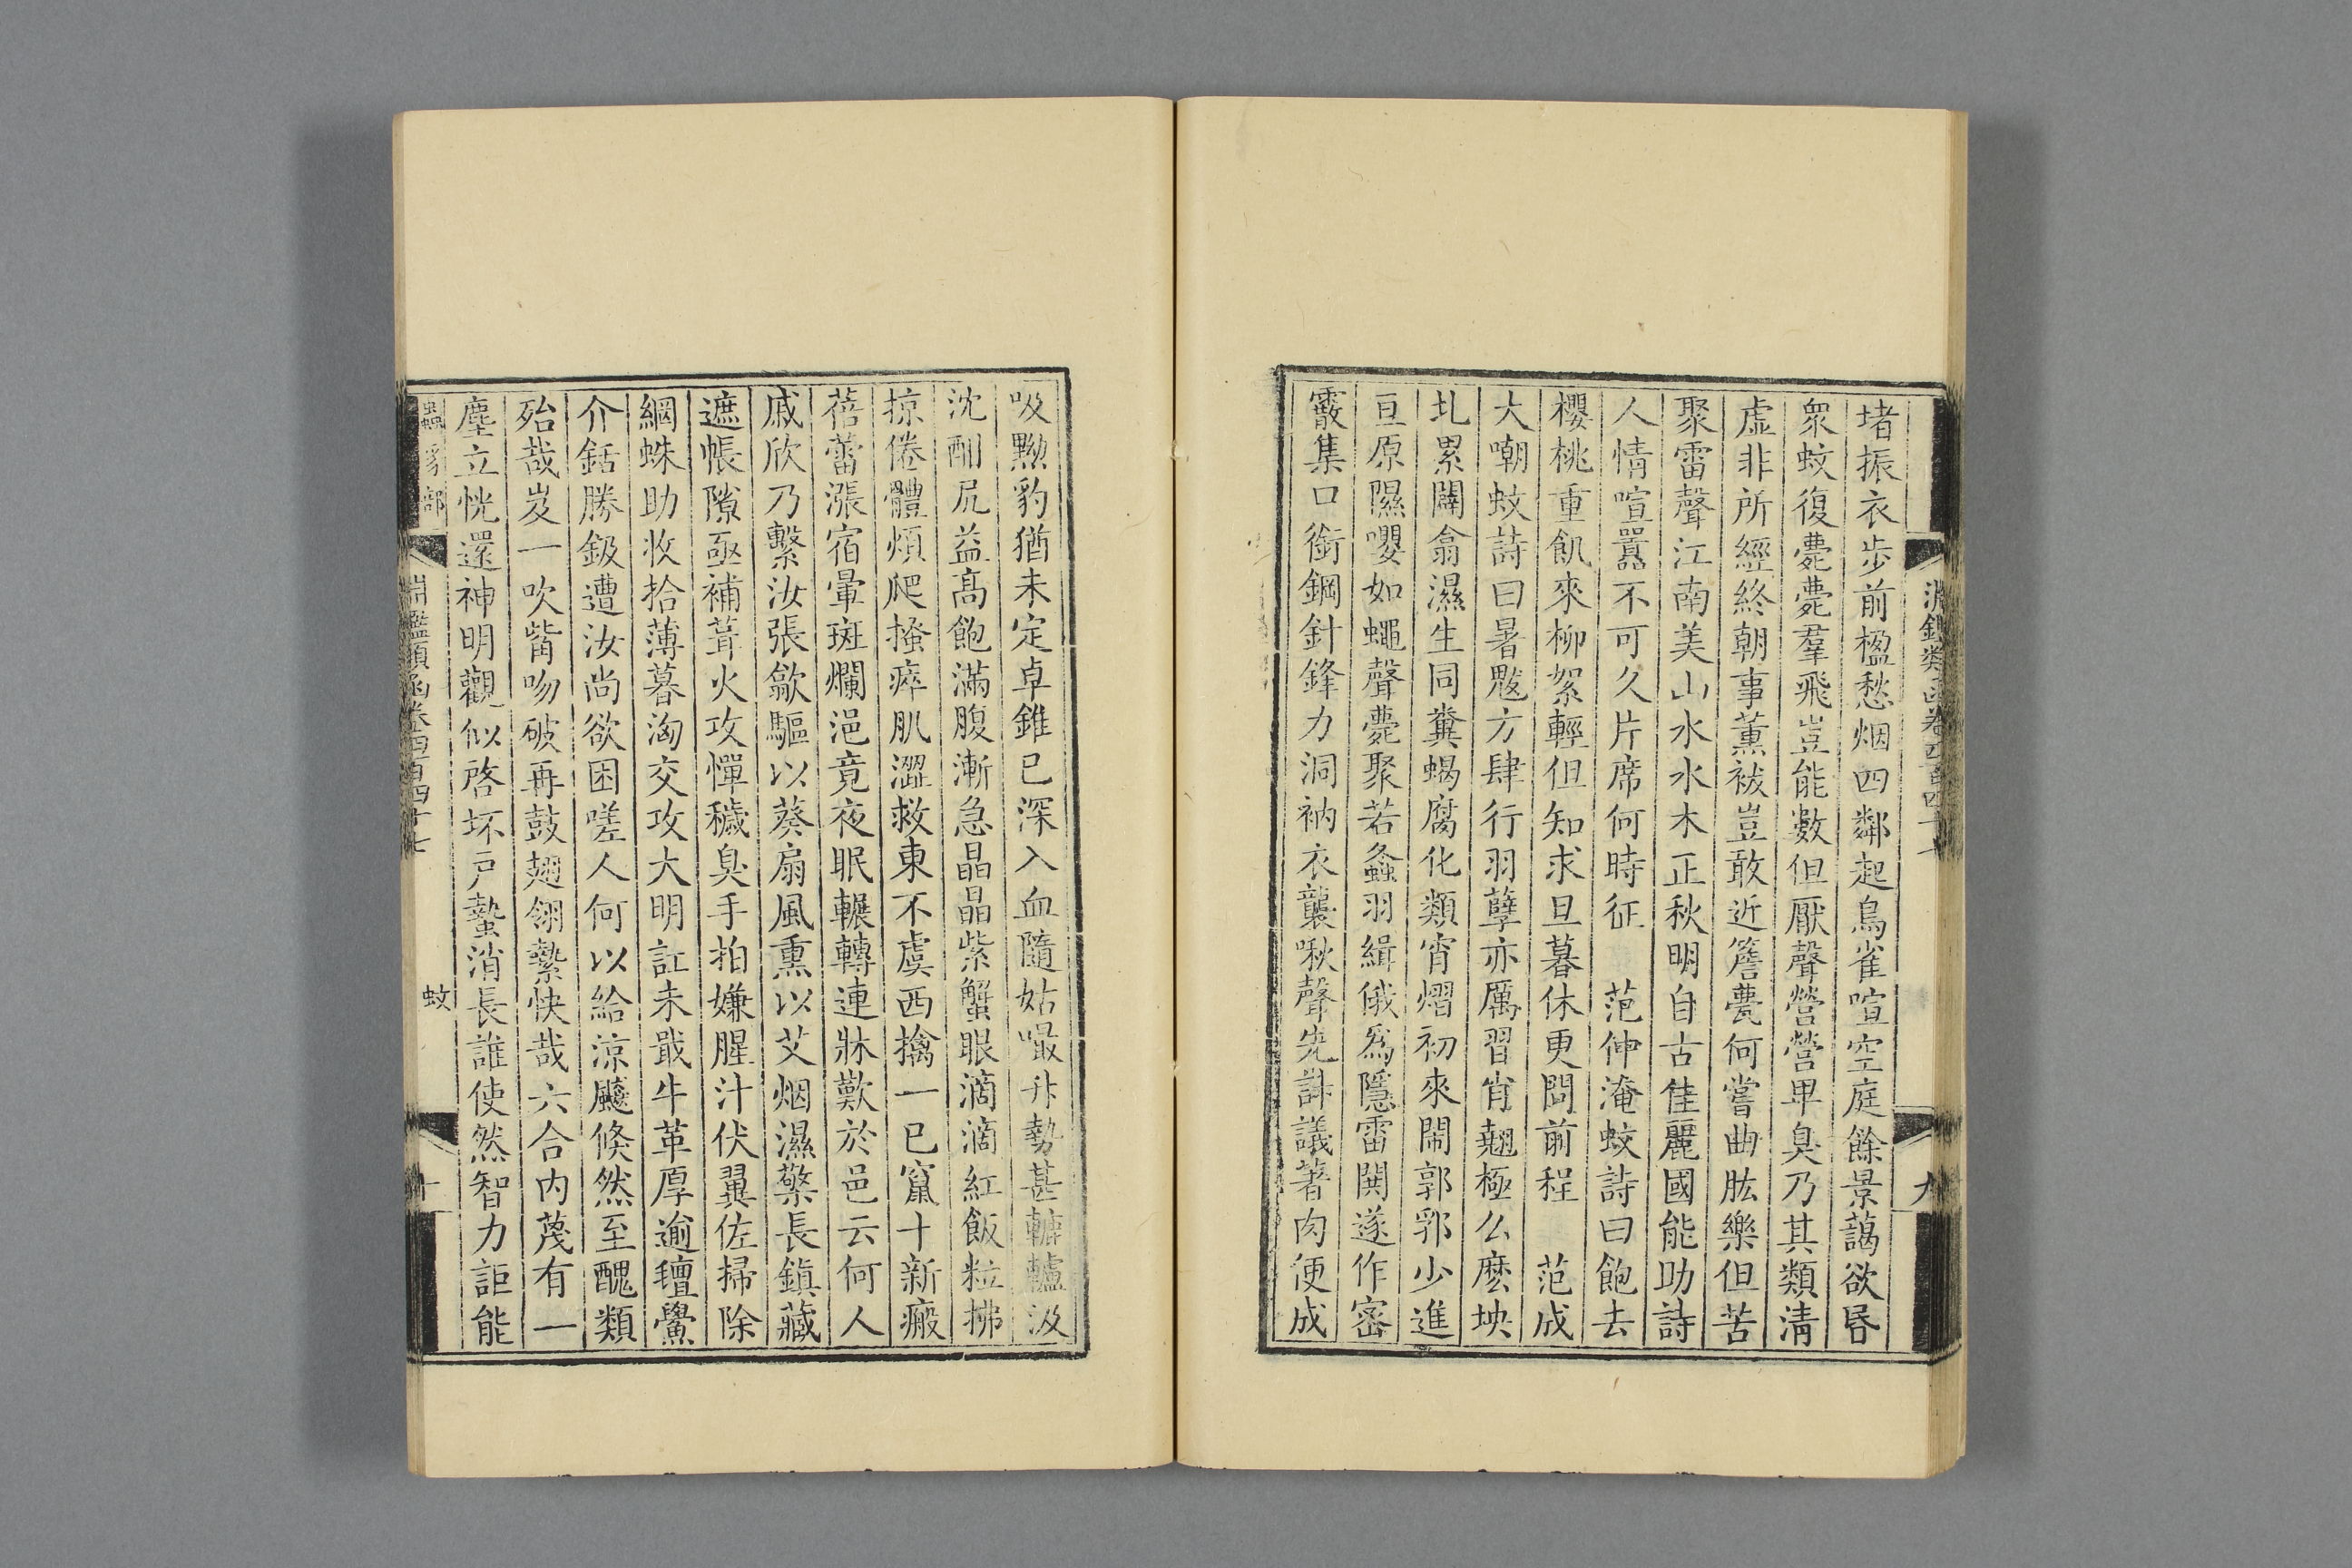 堵振衣步前楹愁烟四鄰起鳥雀喧空庭餘景藹欲昏
衆蚊復薨薨羣飛豈能數但厭聲營營卑臭乃其類淸
虛非所經終朝事薰祓豈敢近簷甍何嘗曲肱樂但苦
聚雷聲江南美山水水木正秋明自古佳麗國能助詩
人情喧囂不可久片席何時征　范仲淹蚊詩曰飽去
櫻桃重飢來柳絮輕但知求旦暮休更問前程　范成
大嘲蚊詩曰暑魃方肆行羽孽亦厲習肖翹極么麽坱
圠累闢翕濕生同糞蝎腐化類宵熠初來鬧郭郛少進
亘原隰嚶如蠅聲薨聚若螽羽緝俄爲隱雷鬨遂作密
霰集口銜鋼針鋒力洞衲衣襲啾聲先計議著肉便成
吸黥豹猶未定卓錐已深入血隨姑嘬升勢甚轆轤汲
沈酣尻益高飽滿腹漸急晶晶紫蟹眼滴滴紅飯粒拂
掠倦體煩爬搔瘁肌澀救東不虞西擒一已竄十新瘢
蓓蕾漲宿暈斑爛浥竟夜眠輾轉連牀歎於邑云何人
戚欣乃繫汝張歙驅以葵扇風熏以艾烟濕檠長鎮藏
遮帳隙亟補葺火攻憚穢臭手拍嫌腥汁伏翼佐掃除
網蛛助收拾薄暮洶交攻大明訌未戢牛革厚逾氊鱟
介銛勝鈒遭汝尚欲困嗟人何以給涼飈倐然至醜類
殆哉岌一吹觜吻破再鼓翅翎縶快哉六合内蔑有一
塵立恍還神明觀似啓坏戸蟄消長誰使然智力詎能
蟲豸部
淵鑑類函卷四百四十七
蚊
十